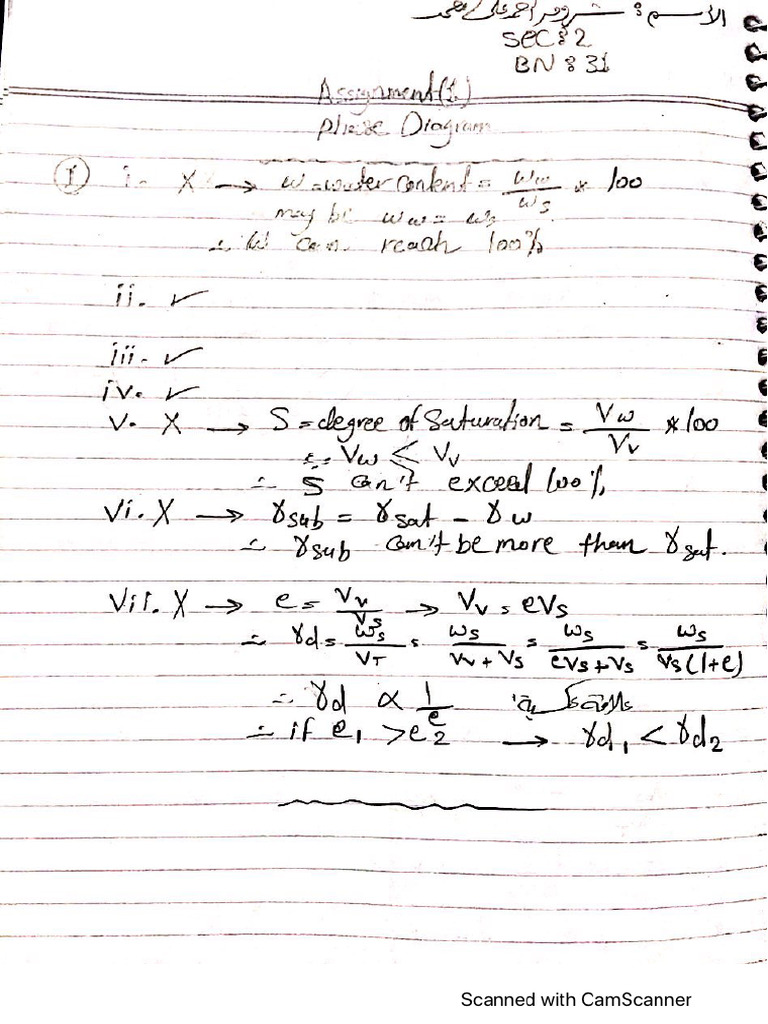 الاسم: أحمد على محمد
SEC: 2
BN: 31
Assignment(1)
phase Diagram
I i- X → w = water content = Ww/Ws * 100
may be ww = ws
∴ W can reach 100%
ii. ✓
iii- ✓
iv. ✓
v. X → S = degree of Saturation = Vw/Vv * 100
∵ Vw < Vv
∴ S can't exceed 100%
Vi. X → γsub = γsat - γw
∴ γsub can't be more than γsat.
Vii. X → e = Vv/Vs → Vv = eVs
∴ γd = ws/VT = ws/(Vv + Vs) = ws/(eVs + Vs) = ws/(Vs(1+e))
∴ γd ∝ 1/e علاقة عكسية
∴ if e1 > e2 → γd1 < γd2
Scanned with CamScanner